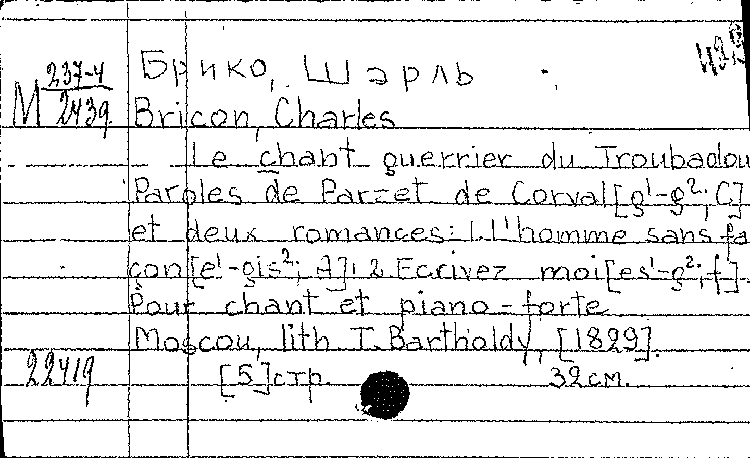 Брико, Шарль
М 237-4
2439
Bricon, Charles
Le chant guerrier du Troubadou
Paroles de Parzet de Corval [g¹-g²; C]
et deux romances: 1. L'homme sans fa
çon [e¹-gis²; A]; 2. Ecrivez moi [es¹-g²; f].
Pour chant et piano-forte
Moscou, lith. T. Bartholdy, [1829].
22419
[5] стр. 32 см.